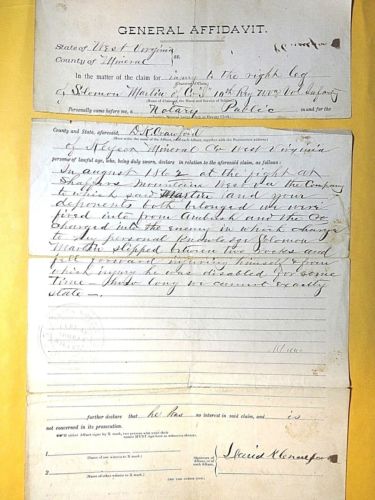 GENERAL AFFIDAVIT.
State of West Virginia
County of Mineral
In the matter of the claim for injury to the right leg
of Solomon Martin of Co 10th Reg W Va Vol Infantry
Personally came before me, a Notary Public in and for
County and State, aforesaid, D. K. Crawford
of Keyser Mineral Co West Virginia
persons of lawful age, who, being duly sworn, declare in relation to the aforesaid claim, as follows:
In August 1862 at the fight at
Shavers Mountain West Va the Company
to which said Martin and your
deponents both belonged we were
fired into from Ambush and the Co
charged into the enemy in which charge
to my personal knowledge Solomon
Martin slipped between two rocks and
fell forward injuring himself & from
which injury he was disabled for some
time – how long we cannot exactly
state –.
further declare that he has no interest in said claim, and is
not concerned in its prosecution.
1
(Name of one witness to X mark.)
2
(Name of other witness to X mark.)
David K Crawford